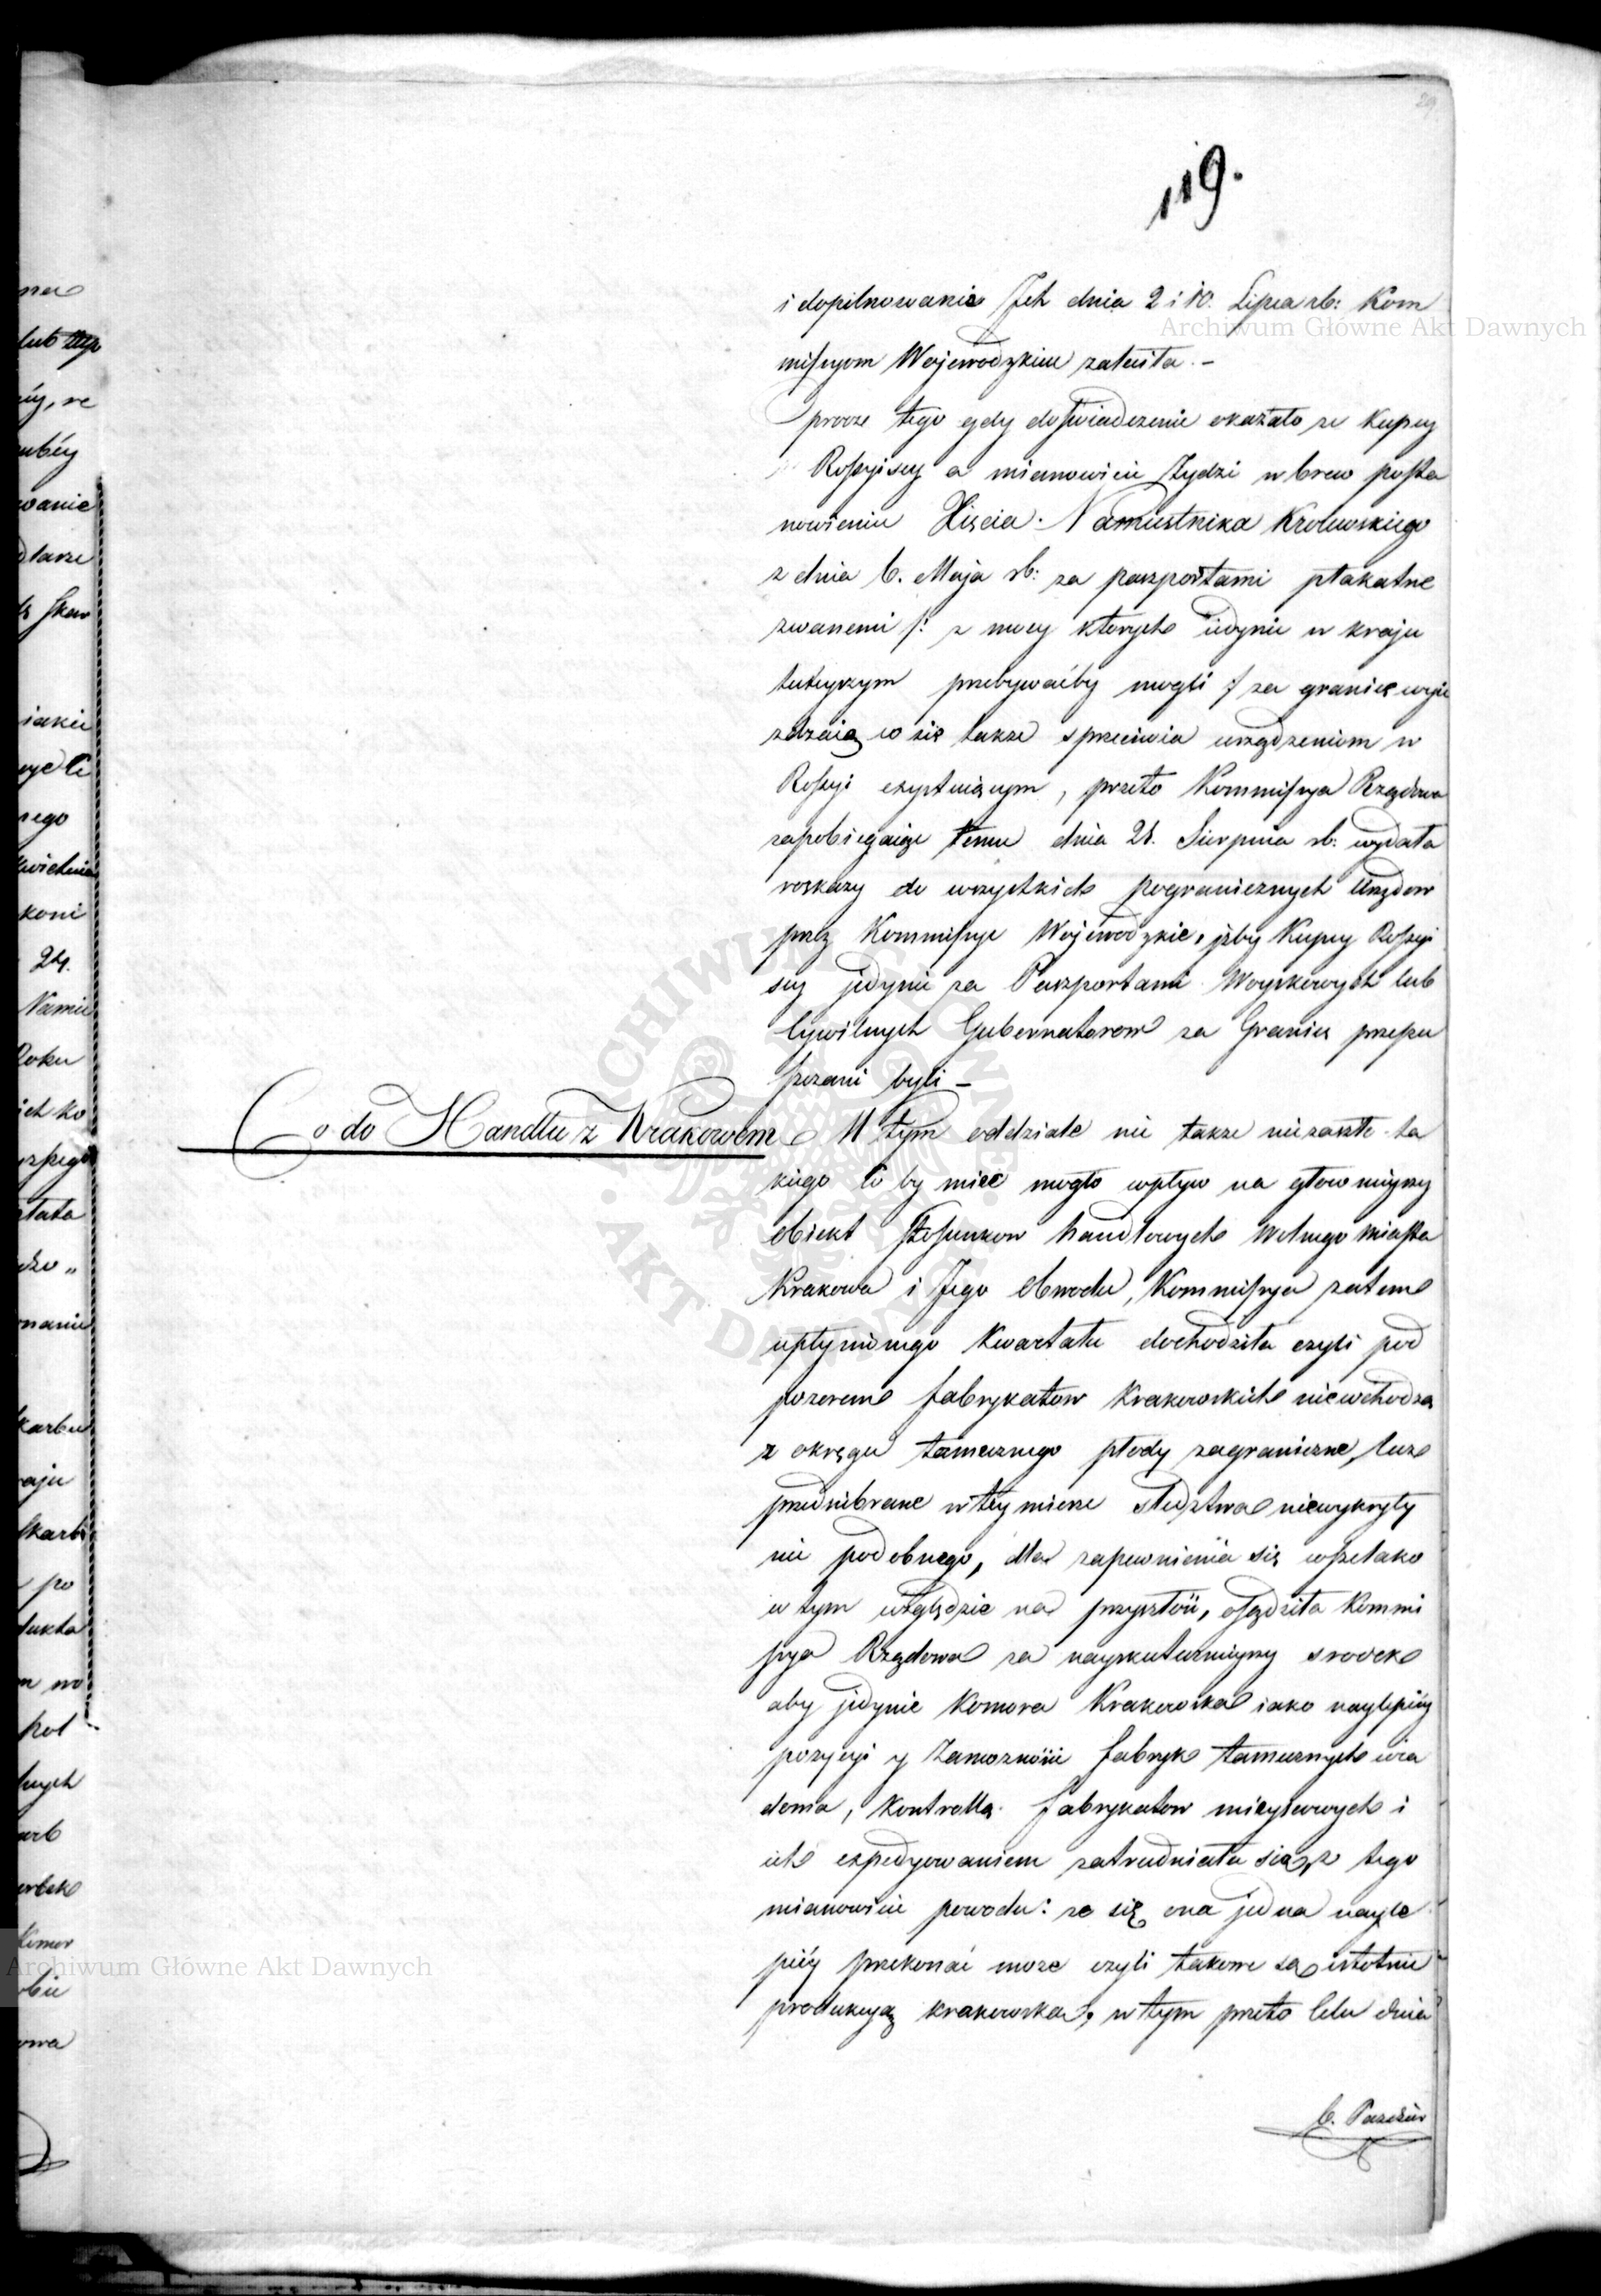 29.
119.
i dopilnowanie Ich dnia 2 i 10. Lipca rb: Kom
missyom Wojewodzkim zaleciła. –
Oprocz tego gdy doświadczenie okazało ze Kupcy
Rossyiscy a mianowicie Żydzi wbrew posta
nowieniu Xięcia Namiestnika Krolewskiego
z dnia 6. Maja rb: za paszportami plakatne
zwanemi /: z mocy ktorych iedynie w kraju
tuteyszym przebywaćby mogli :/ za granicę wyie
zdzaią co się takze sprzeciwia urządzeniom w
Rossyi exystuiącym, przeto Kommissya Rządowa
zapobiegaiąc temu dnia 21. Sierpnia rb: wydała
roskazy do wszystkich pogranicznych Urzędow
przez Kommissye Wojewodzkie, izby Kupcy Rossyi
scy jedynie za Paszportami Woyskowych lub
Cywilnych Gubernatorow za Granicę przepu
szczani byli –
Co do Handlu z Krakowem W tym oddziale nic takze niezaszło ta
kiego co by miec mogło wpływ na głownieyszy
obiekt stosunkow handlowych Wolnego miasta
Krakowa i Jego Obwodu, Kommissya zatem
upłynionego Kwartału dochodziła czyli pod
pozorem fabrykatow Krakowskich niewchodzą
z okręgu tamecznego płody zagraniczne, lecz
przedsiebrane w tey mierze sledztwa niewykryły
nic podobnego, dla zapewnienia się wszelako
w tym względzie na przyszłość, osądziła Kommi
ssya Rządowa za nayskutecznieyszy srodek
aby jedynie Komora Krakowska iako naylepiey
pozycyi y Zamoznosci fabryk tamecznych wia
doma, Kontrollą fabrykatow mieyscowych i
ich expedyowaniem zatrudniała się, z tego
mianowicie powodu: ze się ona jedna nayle
piey przekonać moze czyli takowe są istotnie
produkcyą krakowską, w tym przeto Celu dnia
Archiwum Główne Akt Dawnych
Archiwum Główne Akt Dawnych
ARCHIWUM GŁÓWNE AKT DAWNYCH